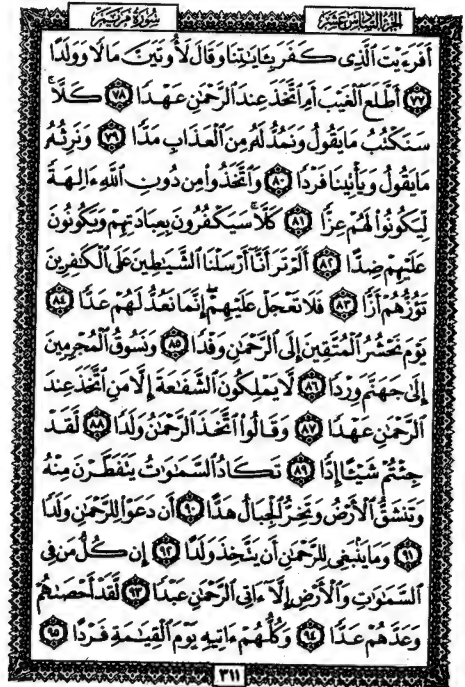 سُورَةُ مَرْيَم الجُزْءُ السَّادِسُ عَشَر
أَفَرَءَيْتَ ٱلَّذِى كَفَرَ بِـَٔايَـٰتِنَا وَقَالَ لَأُوتَيَنَّ مَالًا وَوَلَدًا
٧٧ أَطَّلَعَ ٱلْغَيْبَ أَمِ ٱتَّخَذَ عِندَ ٱلرَّحْمَـٰنِ عَهْدًا ٧٨ كَلَّا ۚ
سَنَكْتُبُ مَا يَقُولُ وَنَمُدُّ لَهُۥ مِنَ ٱلْعَذَابِ مَدًّا ٧٩ وَنَرِثُهُۥ
مَا يَقُولُ وَيَأْتِينَا فَرْدًا ٨٠ وَٱتَّخَذُوا۟ مِن دُونِ ٱللَّهِ ءَالِهَةً
لِّيَكُونُوا۟ لَهُمْ عِزًّا ٨١ كَلَّا ۚ سَيَكْفُرُونَ بِعِبَادَتِهِمْ وَيَكُونُونَ
عَلَيْهِمْ ضِدًّا ٨٢ أَلَمْ تَرَ أَنَّآ أَرْسَلْنَا ٱلشَّيَـٰطِينَ عَلَى ٱلْكَـٰفِرِينَ
تَؤُزُّهُمْ أَزًّا ٨٣ فَلَا تَعْجَلْ عَلَيْهِمْ ۖ إِنَّمَا نَعُدُّ لَهُمْ عَدًّا ٨٤
يَوْمَ نَحْشُرُ ٱلْمُتَّقِينَ إِلَى ٱلرَّحْمَـٰنِ وَفْدًا ٨٥ وَنَسُوقُ ٱلْمُجْرِمِينَ
إِلَىٰ جَهَنَّمَ وِرْدًا ٨٦ لَّا يَمْلِكُونَ ٱلشَّفَـٰعَةَ إِلَّا مَنِ ٱتَّخَذَ عِندَ
ٱلرَّحْمَـٰنِ عَهْدًا ٨٧ وَقَالُوا۟ ٱتَّخَذَ ٱلرَّحْمَـٰنُ وَلَدًا ٨٨ لَّقَدْ
جِئْتُمْ شَيْـًٔا إِدًّا ٨٩ تَكَادُ ٱلسَّمَـٰوَٰتُ يَتَفَطَّرْنَ مِنْهُ
وَتَنشَقُّ ٱلْأَرْضُ وَتَخِرُّ ٱلْجِبَالُ هَدًّا ٩٠ أَن دَعَوْا۟ لِلرَّحْمَـٰنِ وَلَدًا
٩١ وَمَا يَنۢبَغِى لِلرَّحْمَـٰنِ أَن يَتَّخِذَ وَلَدًا ٩٢ إِن كُلُّ مَن فِى
ٱلسَّمَـٰوَٰتِ وَٱلْأَرْضِ إِلَّآ ءَاتِى ٱلرَّحْمَـٰنِ عَبْدًا ٩٣ لَّقَدْ أَحْصَىٰهُمْ
وَعَدَّهُمْ عَدًّا ٩٤ وَكُلُّهُمْ ءَاتِيهِ يَوْمَ ٱلْقِيَـٰمَةِ فَرْدًا ٩٥
٣١١